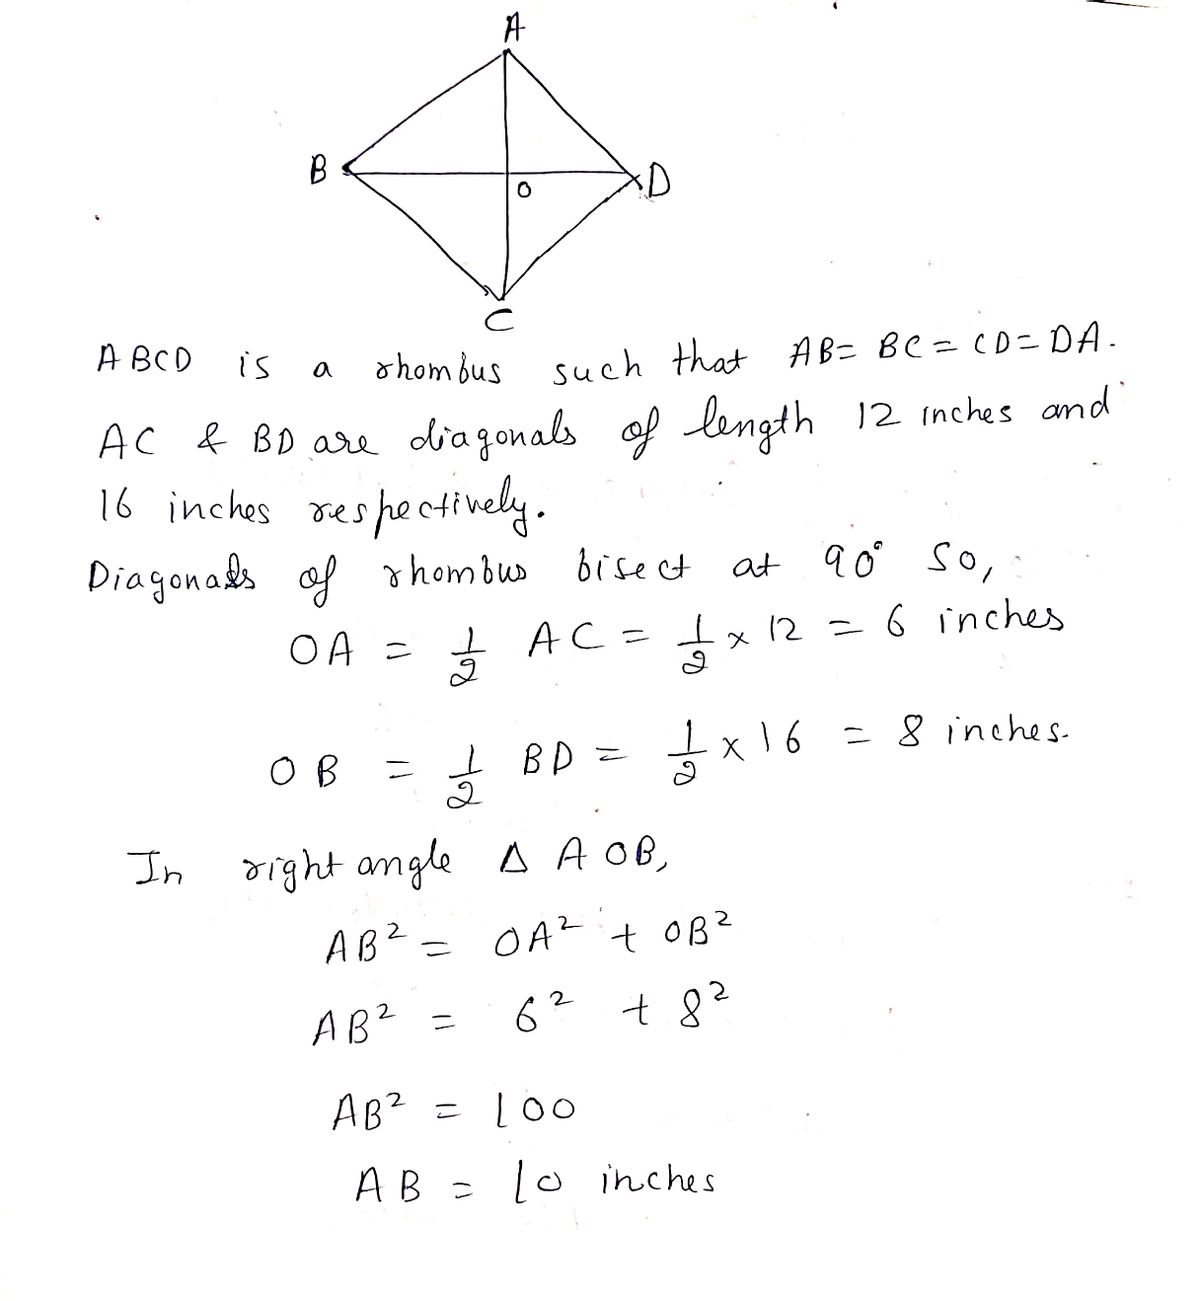 A
B
D
O
C
ABCD is a rhombus such that AB = BC = CD = DA.
AC & BD are diagonals of length 12 inches and
16 inches respectively.
Diagonals of rhombus bisect at 90° so,
OA = 1/2 AC = 1/2 × 12 = 6 inches
OB = 1/2 BD = 1/2 × 16 = 8 inches.
In right angle Δ AOB,
AB² = OA² + OB²
AB² = 6² + 8²
AB² = 100
AB = 10 inches